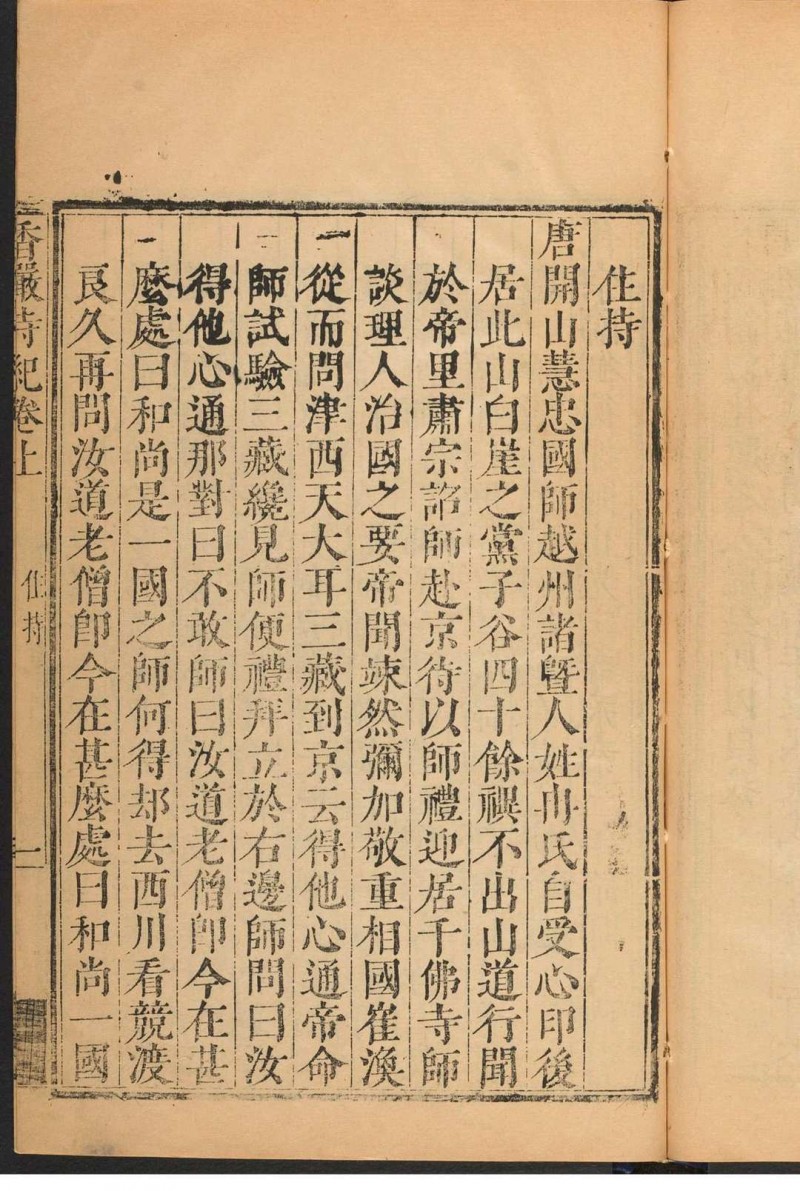 住持
唐開山慧忠國師越州諸暨人姓冉氏自受心印後
居此山白崖之黨子谷四十餘禩不出山道行聞
於帝里肅宗詔師赴京待以師禮迎居千佛寺師
談理人治國之要帝聞竦然彌加敬重相國崔渙
從而問津西天大耳三藏到京云得他心通帝命
師試驗三藏纔見師便禮拜立於右邊師問曰汝
得他心通那對曰不敢師曰汝道老僧卽今在甚
麼處曰和尚是一國之師何得却去西川看競渡
良久再問汝道老僧卽今在甚麼處曰和尚一國
香嚴寺紀卷上 住持 一